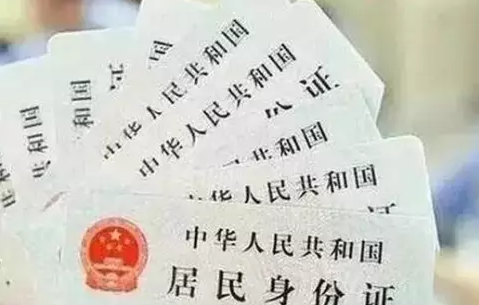 中华人民共和国
中华人民共和国
中华人民共和国
份证
中华人民共和国
中华人民共和国
居民身份证